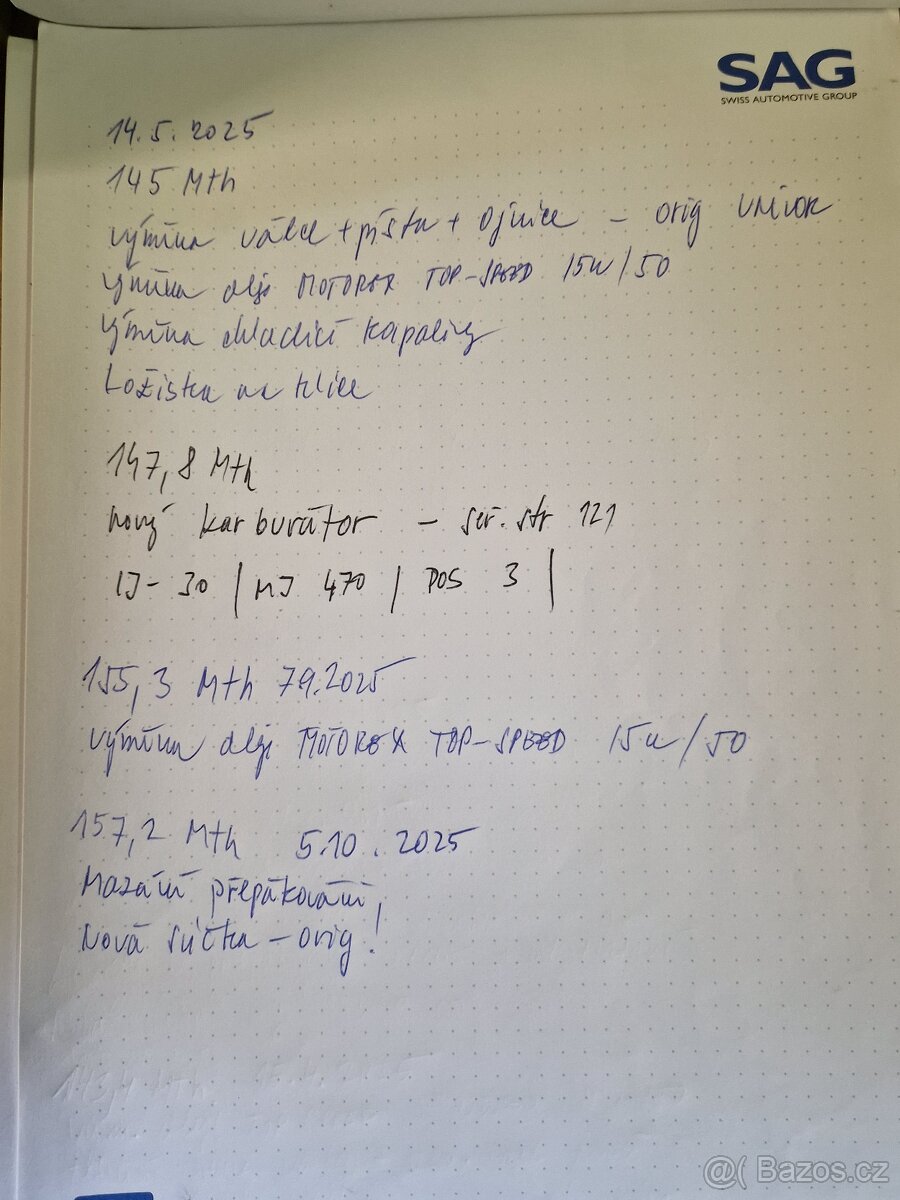 SAG
SWISS AUTOMOTIVE GROUP
14.5.2025
145 Mth
výměna válce + písta + ojnice - orig
výměna oleje MOTOREX TOP-SPEED 15W/50
výměna chladící kapaliny
Ložiska na klice
147,8 Mth
nový karburátor - ser. str 121
IJ - 30 | MJ 470 | POS 3 |
155,3 Mth 7.9.2025
výměna oleje MOTOREX TOP-SPEED 15W/50
157,2 Mth 5.10.2025
Mazání přepákování,
Nová svíčka - orig!
@( Bazos.cz